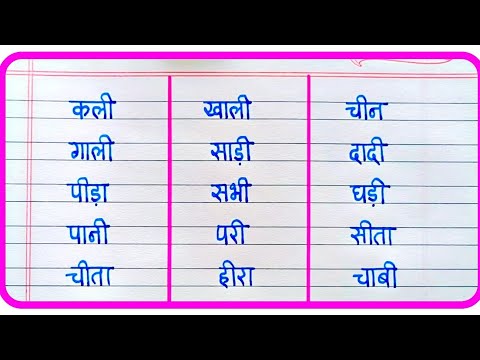 कली खाली चीन
गाली साड़ी दादी
पीड़ा सभी घड़ी
पानी परी सीता
चीता हीरा चाबी